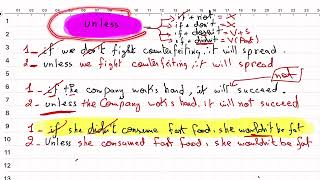 unless
if + not = X
if + don't = X
if + doesn't = V+S
if + didn't = V(past)
1_ if we don't fight counterfeiting, it will spread
2_ unless we fight counterfeiting, it will spread
not
1_ if the company works hard, it will succeed.
2_ unless the company works hard, it will not succeed
1_ if she didn't consume fast food, she wouldn't be fat
2_ Unless she consumed fast food, she wouldn't be fat